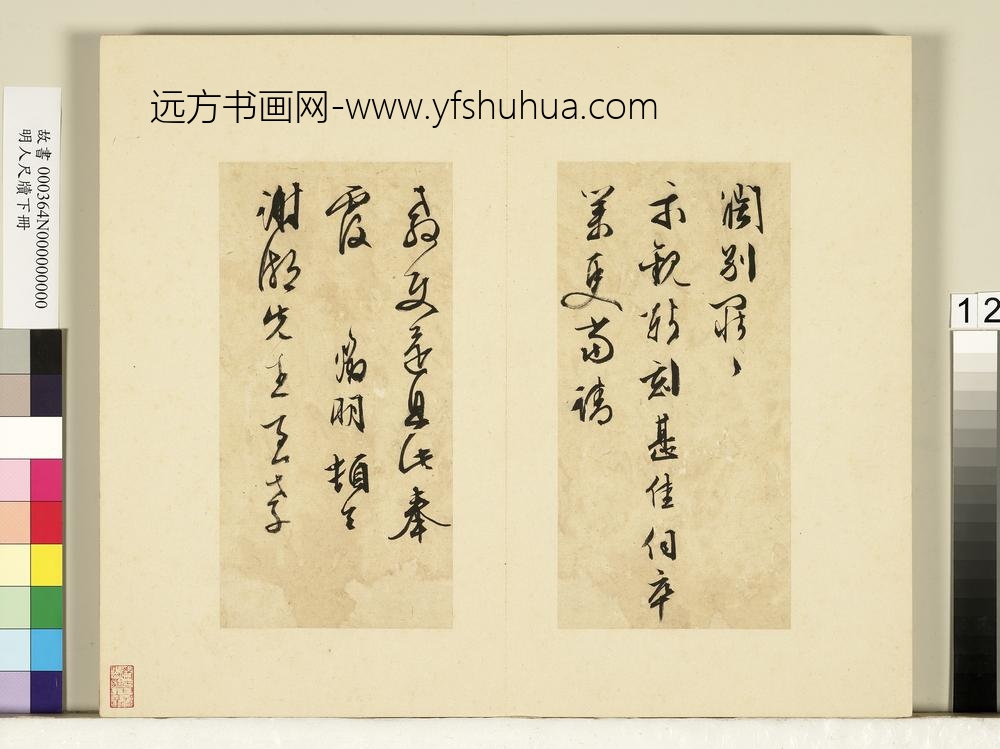 远方书画网-www.yfshuhua.com
故書 000364N000000000
明人尺牘下冊
12
闊別
示觀雅刻甚佳伺卒
業更當請
教更益且此奉
覆 徵明頓首
謝湖先生至孝